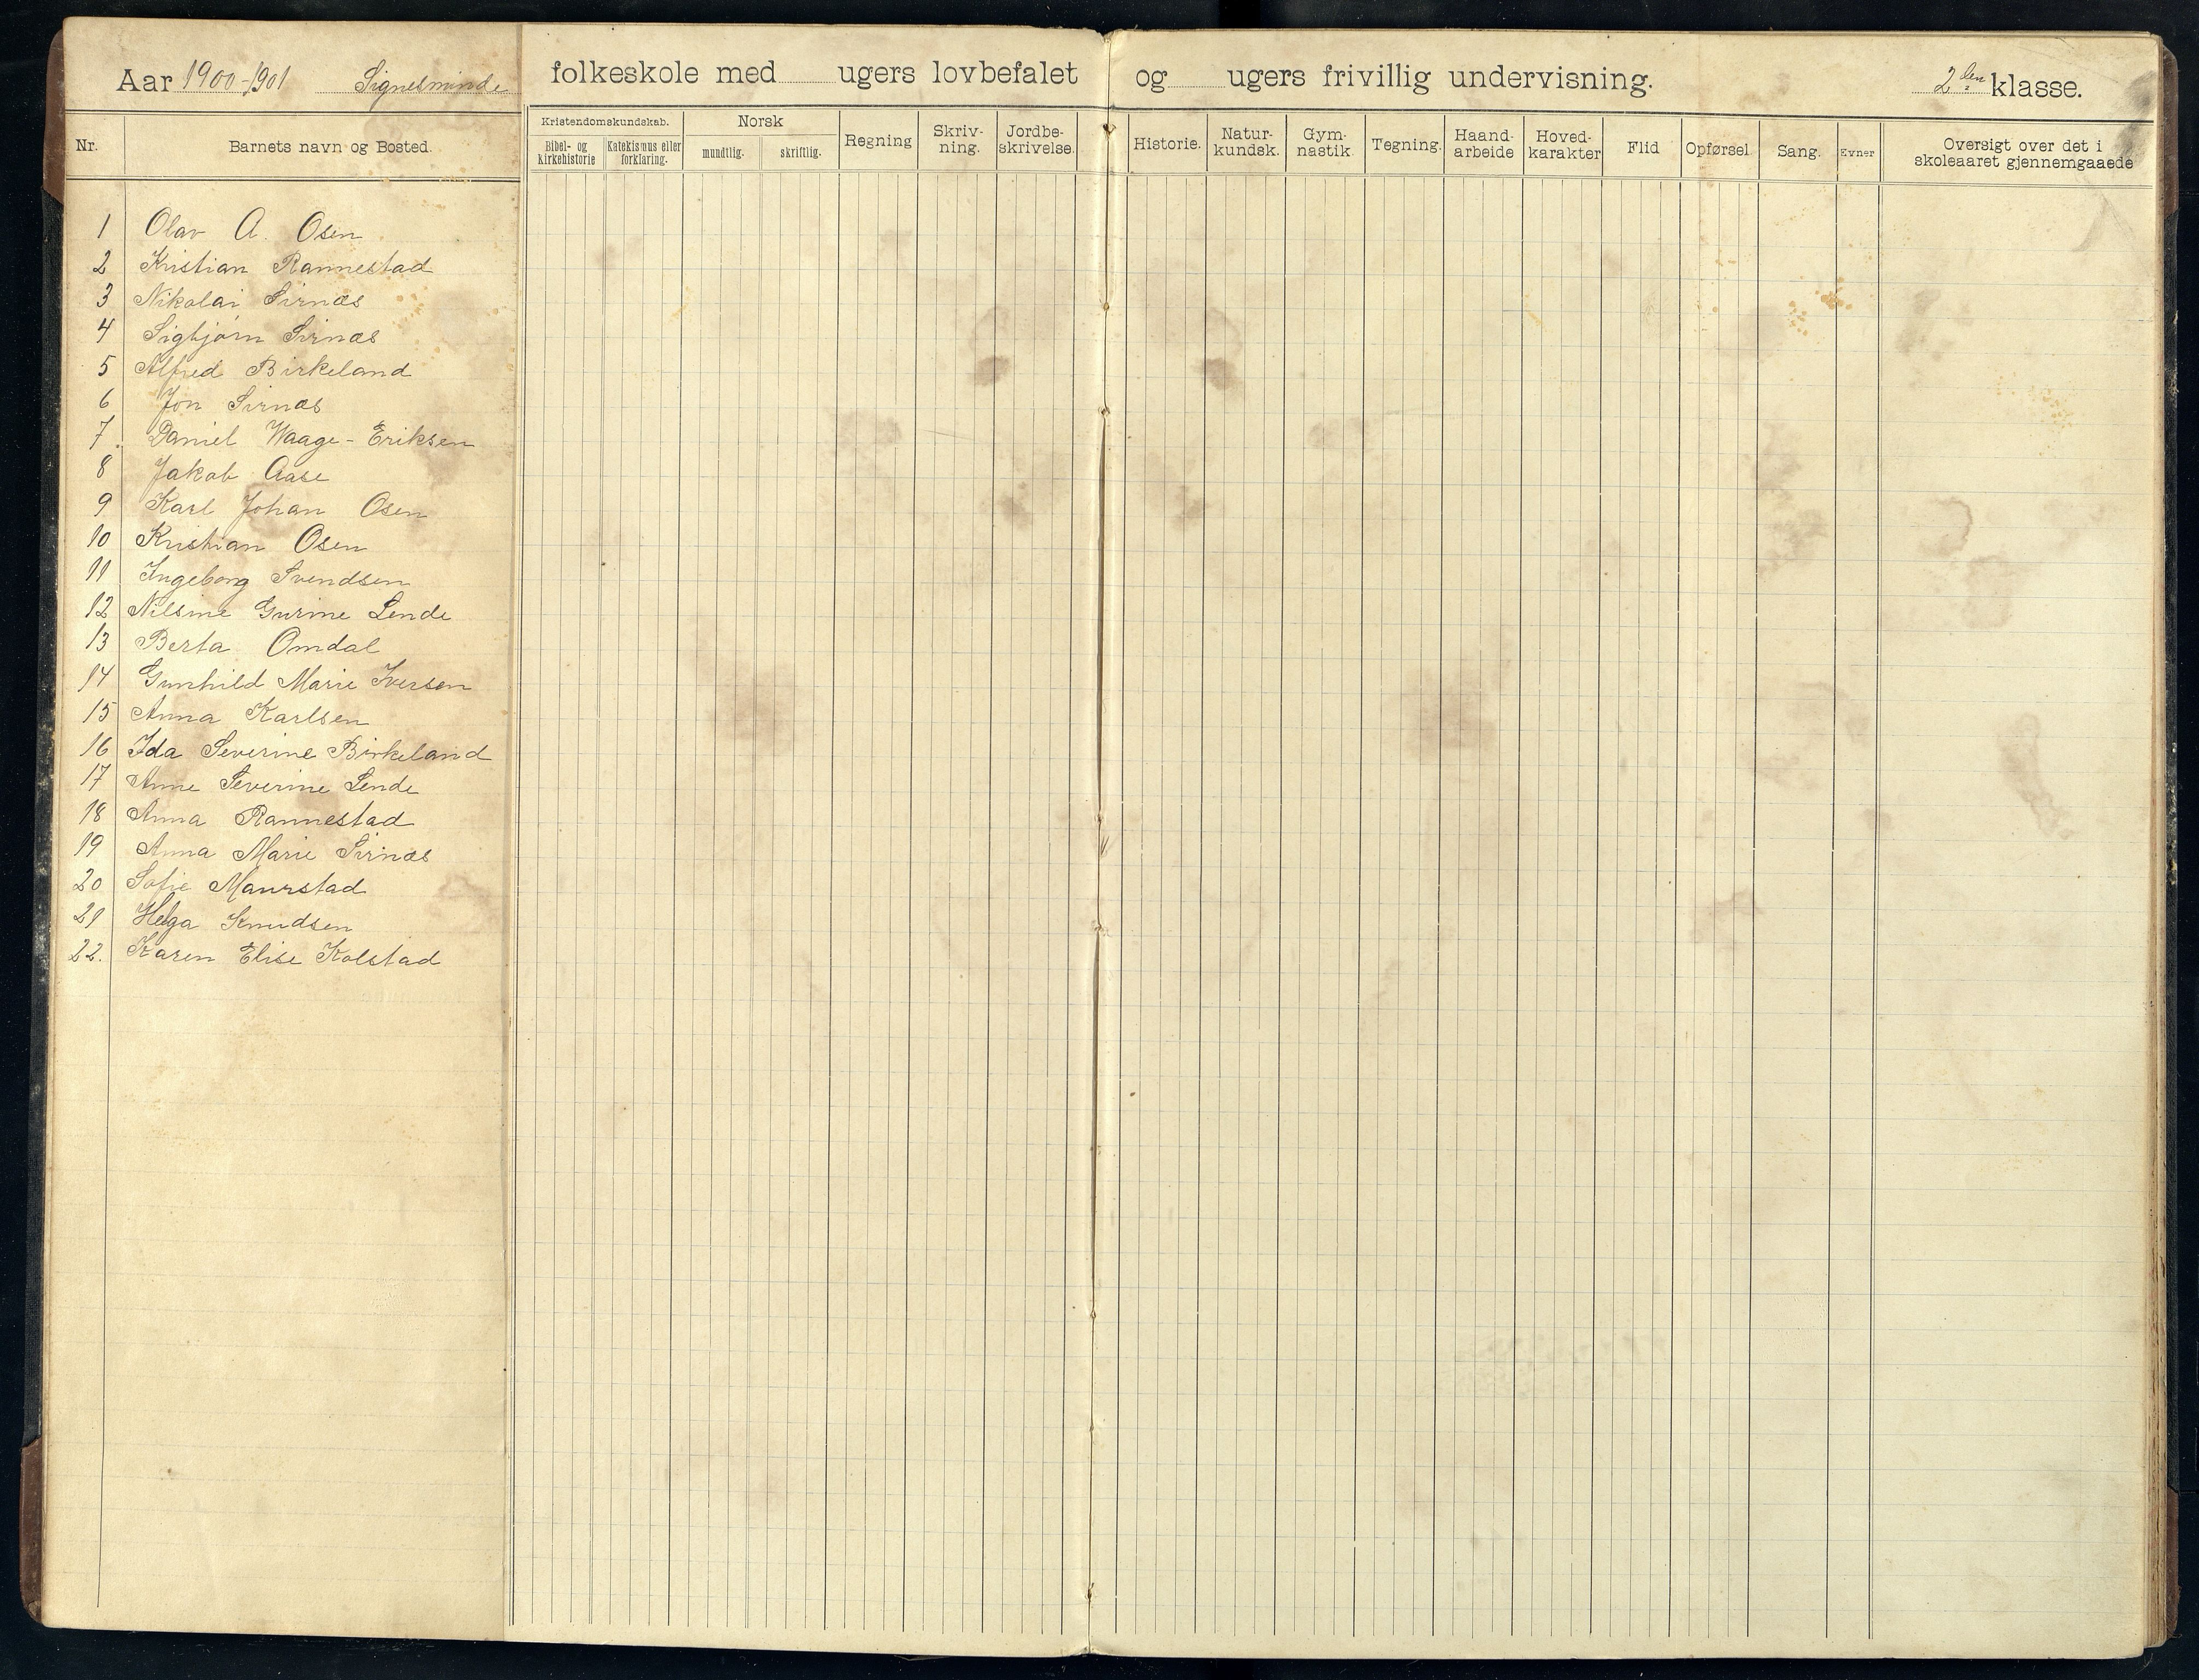 Aar 1900-1901 Signesminde folkeskole med ugers lovbefalet og ugers frivillig undervisning. 2den klasse.
Nr. Barnets navn og Bosted. Kristendomskundskab. Bibel- og kirkehistorie Katekismus eller forklaring. Norsk mundtlig. skriftlig. Regning Skriv-ning. Jordbe-skrivelse. Historie. Natur-kundsk. Gym-nastik. Tegning. Haand-arbeide Hoved-karakter Flid Opførsel Sang. Evner Oversigt over det i skoleaaret gjennemgaaede
1 Olav A. Osen
2 Kristian Rannestad
3 Nikolai Sirnæs
4 Sigbjørn Sirnæs
5 Alfred Birkeland
6 Jon Sirnæs
7. Daniel Waage-Eriksen
8 Jakob Aase
9 Karl Johan Osen
10 Kristian Osen
11 Ingeborg Svendsen
12 Nilsine Gurine Lende
13 Berta Omdal
14 Gunhild Marie Iversen
15 Anna Karlsen
16 Ida Severine Birkeland
17 Anne Severine Lende
18 Anna Rannestad
19 Anna Marie Sirnæs
20 Sofie Maurstad
21 Helga Knudsen
22. Karen Elise Kolstad